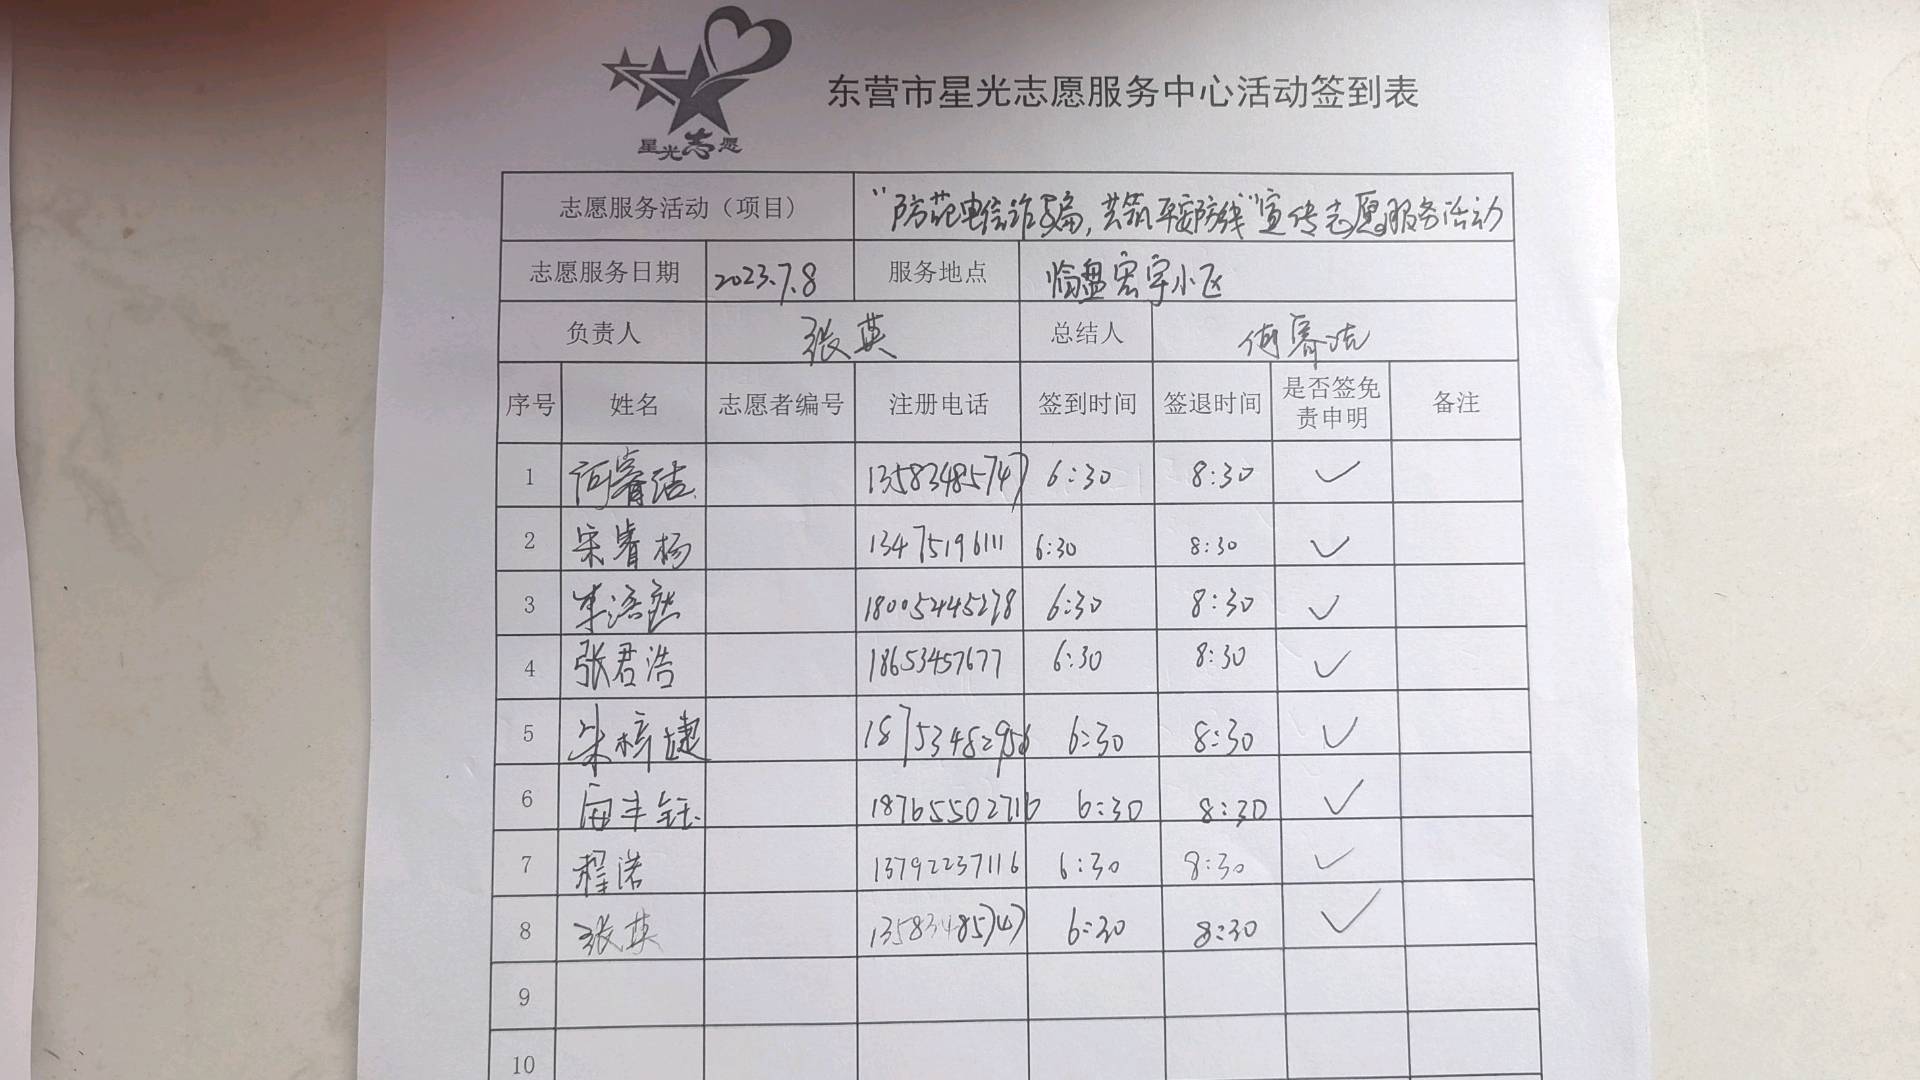 星光志愿
东营市星光志愿服务中心活动签到表
志愿服务活动（项目） “防范电信诈骗，共筑平安防线”宣传志愿服务活动
志愿服务日期 2023.7.8 服务地点 临盘宏宇小区
负责人 张英 总结人 何睿洁
序号 姓名 志愿者编号 注册电话 签到时间 签退时间 是否签免责申明 备注
1 何睿洁 13583485747 6:30 8:30 ✓
2 宋睿杨 13475196111 6:30 8:30 ✓
3 李浯然 18005445278 6:30 8:30 ✓
4 张君浩 18653457677 6:30 8:30 ✓
5 朱梓婕 18753482956 6:30 8:30 ✓
6 18765502716 6:30 8:30 ✓
7 程诺 13792237116 6:30 8:30 ✓
8 张英 13583485747 6:30 8:30 ✓
9
10